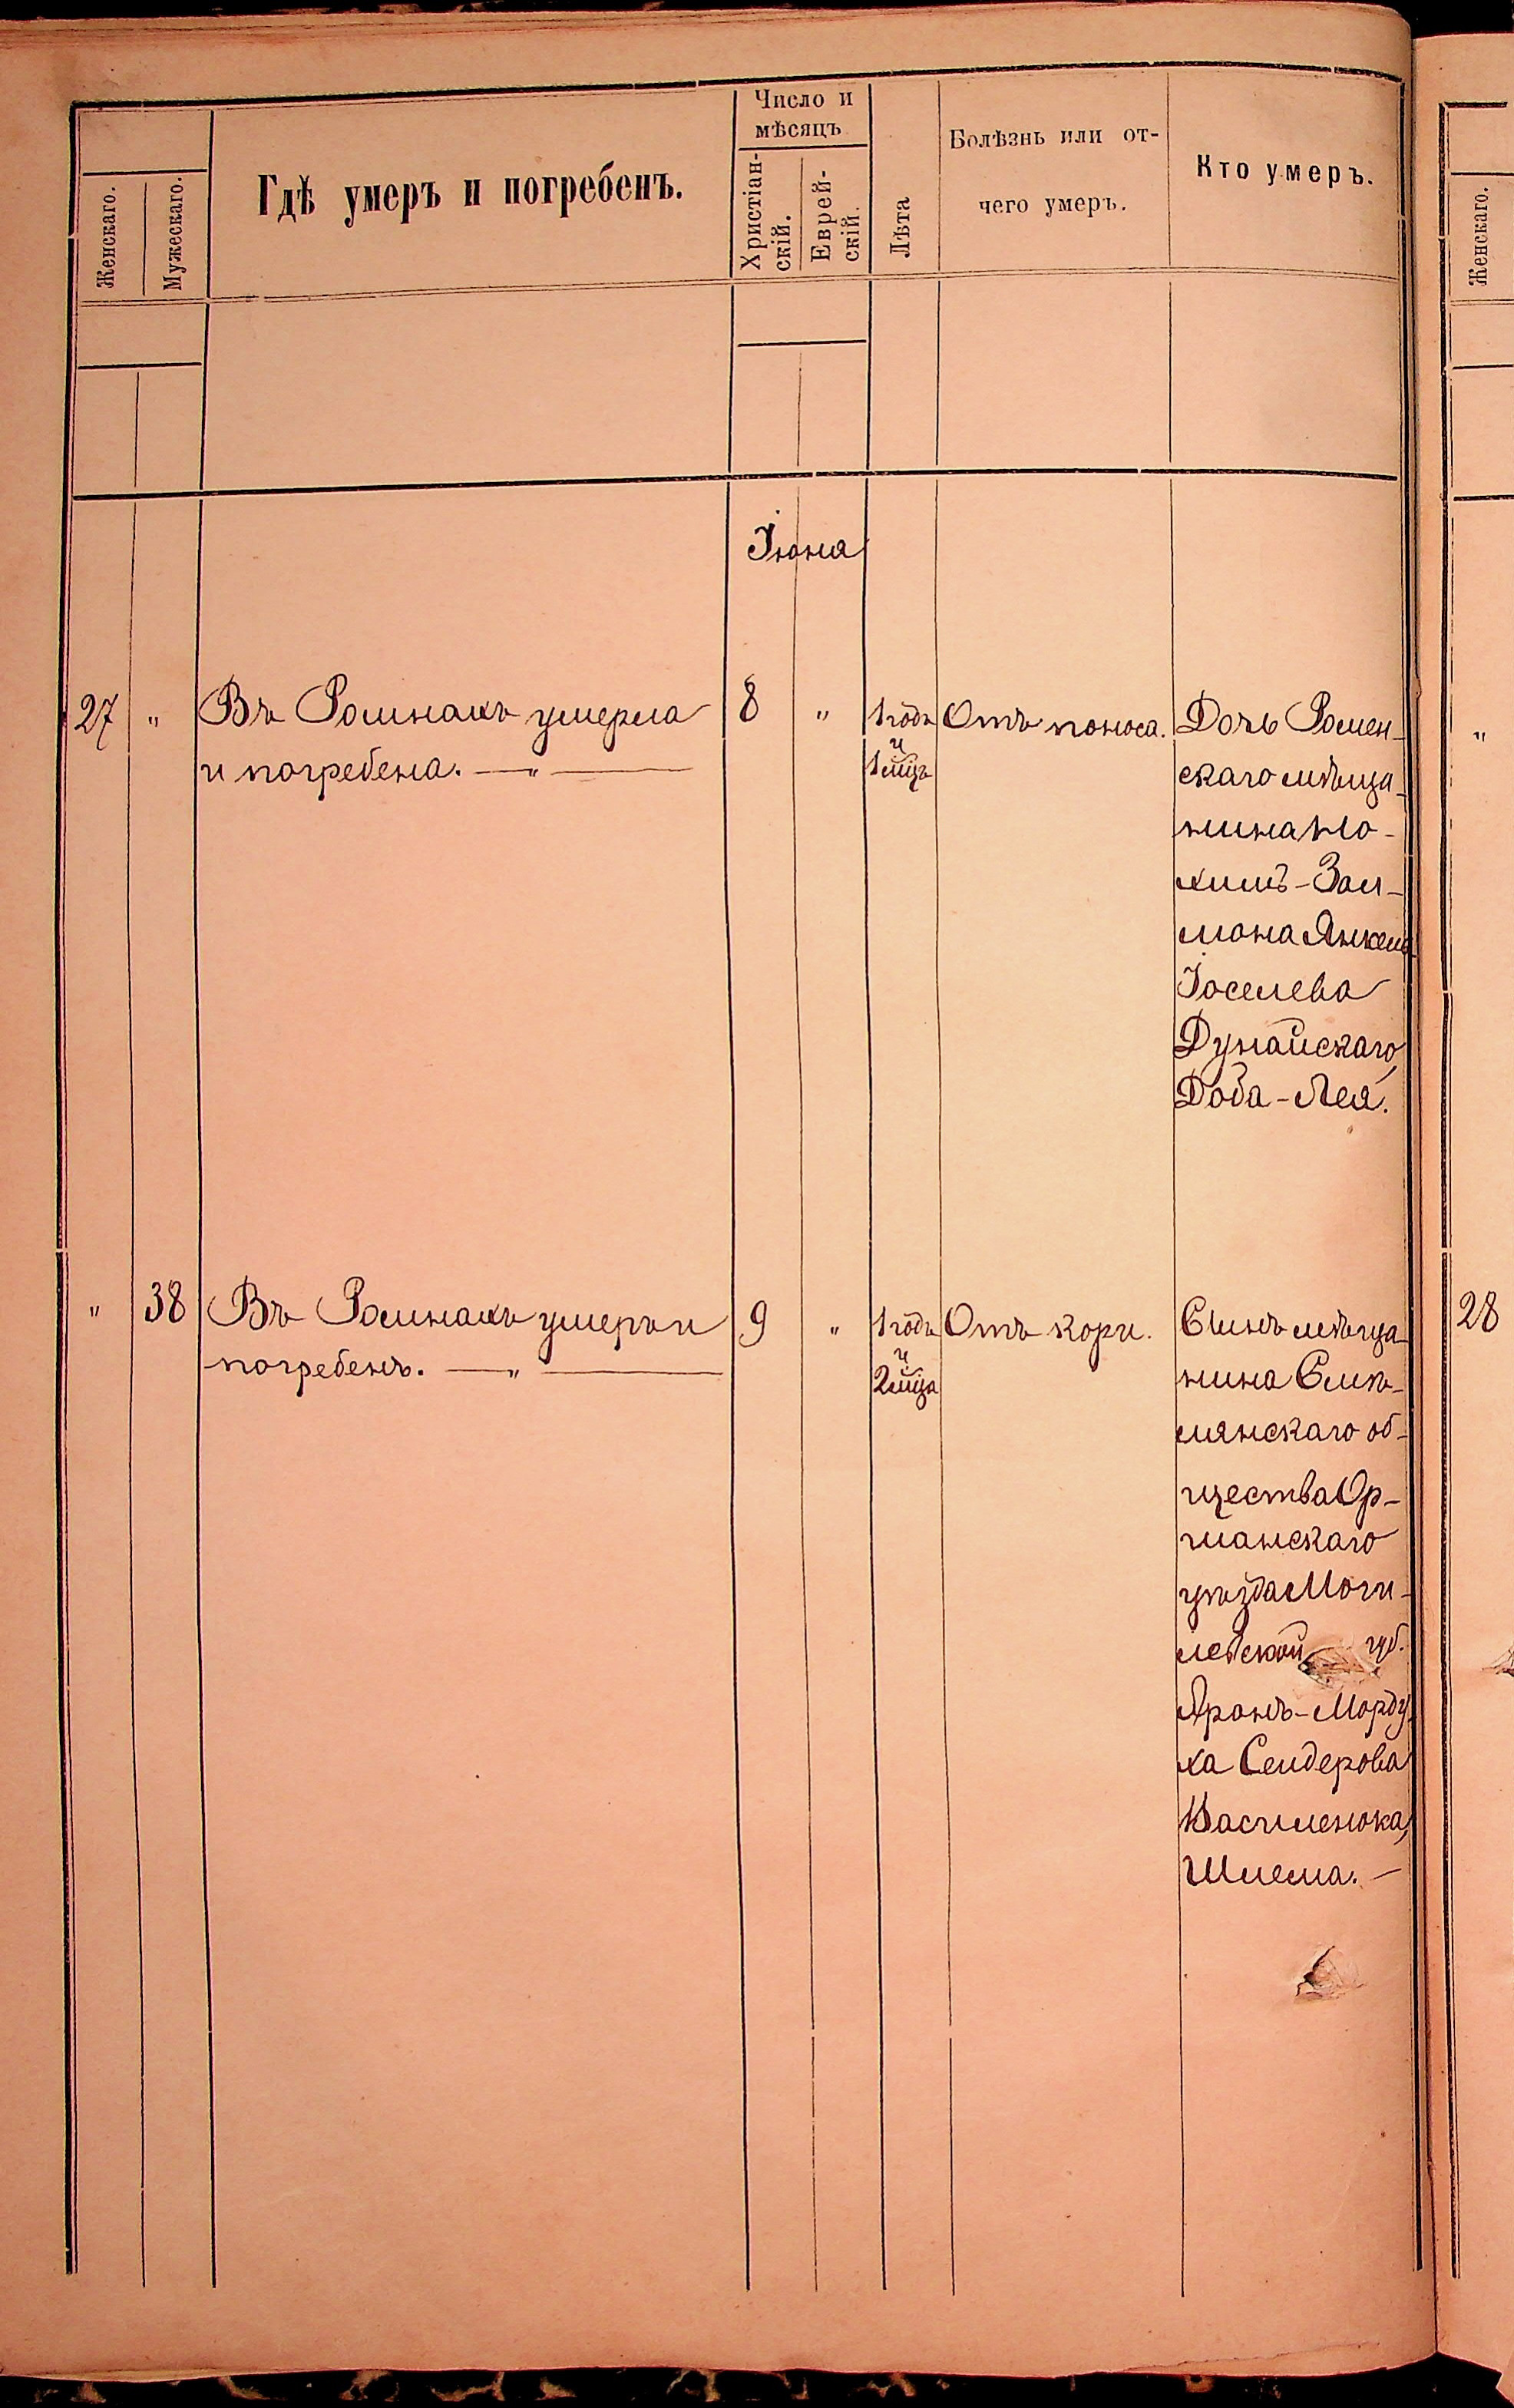 Женскаго.
Мужескаго.
Гдѣ умеръ и погребенъ.
Число и
мѣсяцъ
Христіан-
скій.
Еврей-
скій.
Лѣта
Болѣзнь или от-
чего умеръ.
Кто умеръ.
Женскаго.
Іюня
27 " Въ Ромнахъ умерла
и погребена. — " —
8 "
1 годъ
и
1 мѣц
Отъ поноса.
Дочь Ромен-
скаго мѣща-
нина
Зал-
мона Янкель
Іоселева
Дунайскаго,
Доба-Лея.
"
" 38 Въ Ромнахъ умеръ и
погребенъ. — " —
9 "
1 годъ
и
2 мца
Отъ кори.
Сынъ мѣща-
нина
лянскаго об-
щества Ор-
шанскаго
уѣзда Моги-
левской губ.
Аронъ-Морду
ха Сендерова
Василенока,
Шлема. —
28